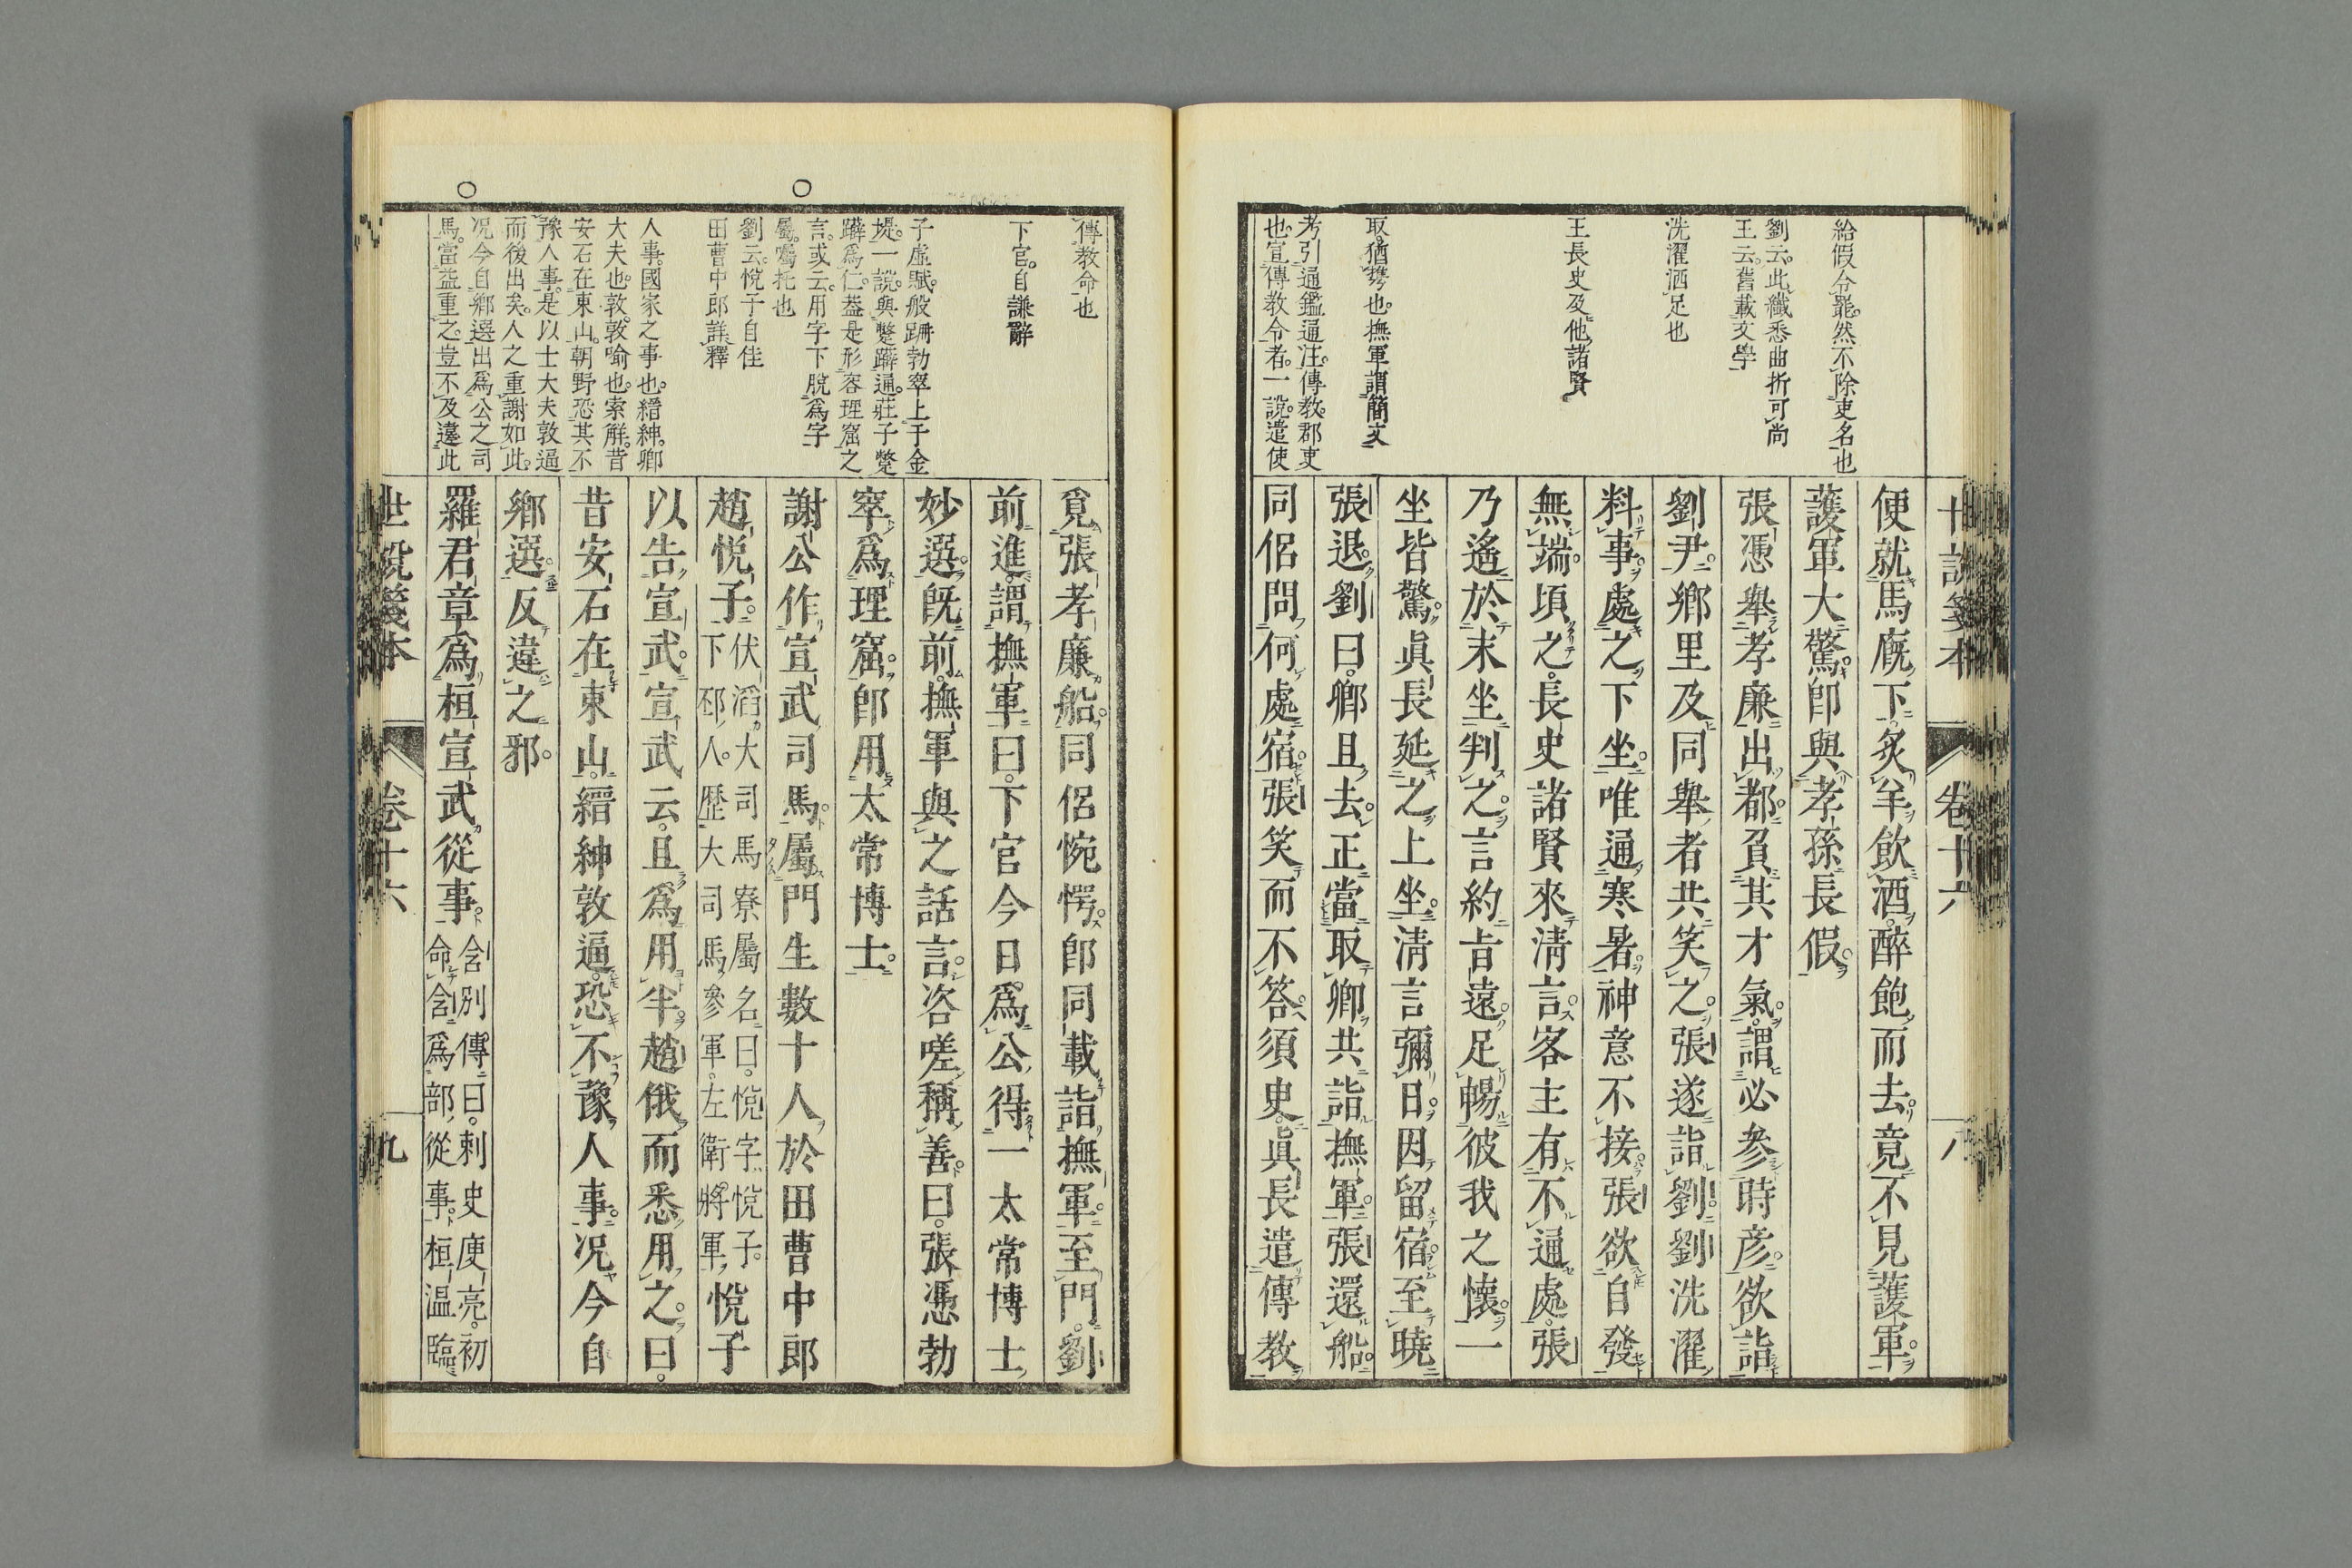 世說箋本
卷十六
八
給假令罷。然不除吏名也
劉云。此纖悉曲折可尚
王云。舊載文學
洗濯洒足也
王長史及他諸賢
取。猶攜也。撫軍謂簡文
考引通鑑通注。傳教。郡吏
也。宣傳教令者。一說遣使
便就馬廐下。炙羊飲酒。醉飽而去。竟不見護軍。
護軍大驚。卽與孝孫長假。
張憑舉孝廉出都。負其才氣。謂必參時彦。欲詣
劉尹。鄉里及同舉者共笑之。張遂詣劉。劉洗濯
料事。處之下坐。唯通寒暑。神意不接。張欲自發
無端。頃之。長史諸賢來淸言。客主有不通處。張
乃遙於末坐判之。言約旨遠。足暢彼我之懷。一
坐皆驚。眞長延之上坐。淸言彌日。因留宿至曉
張退。劉曰。卿且去。正當取卿共詣撫軍。張還船。
同侶問何處宿。張笑而不答。須臾。眞長遣傳教
傳教命也
下官。自謙辭
子虛賦。般跚勃窣上于金
堤。一說。與蹩躠通。莊子蹩
躠爲仁。蓋是形容理窟之
言。或云。用字下脫爲字
屬。囑托也
劉云。悅子自佳
田曹中郎詳釋
人事。國家之事也。縉紳。卿
大夫也。敦。敦喻也。索解。昔
安石在東山。朝野恐其不
豫人事。是以士大夫敦逼
而後出矣。人之重謝如此。
况今自鄉選出爲公之司
馬。當益重之。豈不及違此
覓張孝廉船。同侶惋愕。卽同載詣撫軍。至門。劉
前進。謂撫軍曰。下官今日。爲公得一太常博士
妙選。旣前。撫軍與之話言。咨嗟稱善。曰。張憑勃
窣爲理窟。卽用太常博士。
謝公作宣武司馬。屬門生數十人於田曹中郎
趙悅子。伏滔。大司馬寮屬名曰。悅字悅子。下邳人。歷大司馬參軍。左衛將軍。悅子
以告宣武。宣武云。且爲用半。趙俄而悉用之。曰。
昔安石在東山。縉紳敦逼。恐不豫人事。况今自
鄉選。反違之邪。
羅君章爲桓宣武從事。含別傳曰。刺史庾亮。初命含爲部從事。桓溫臨
世說箋本
卷十六
九